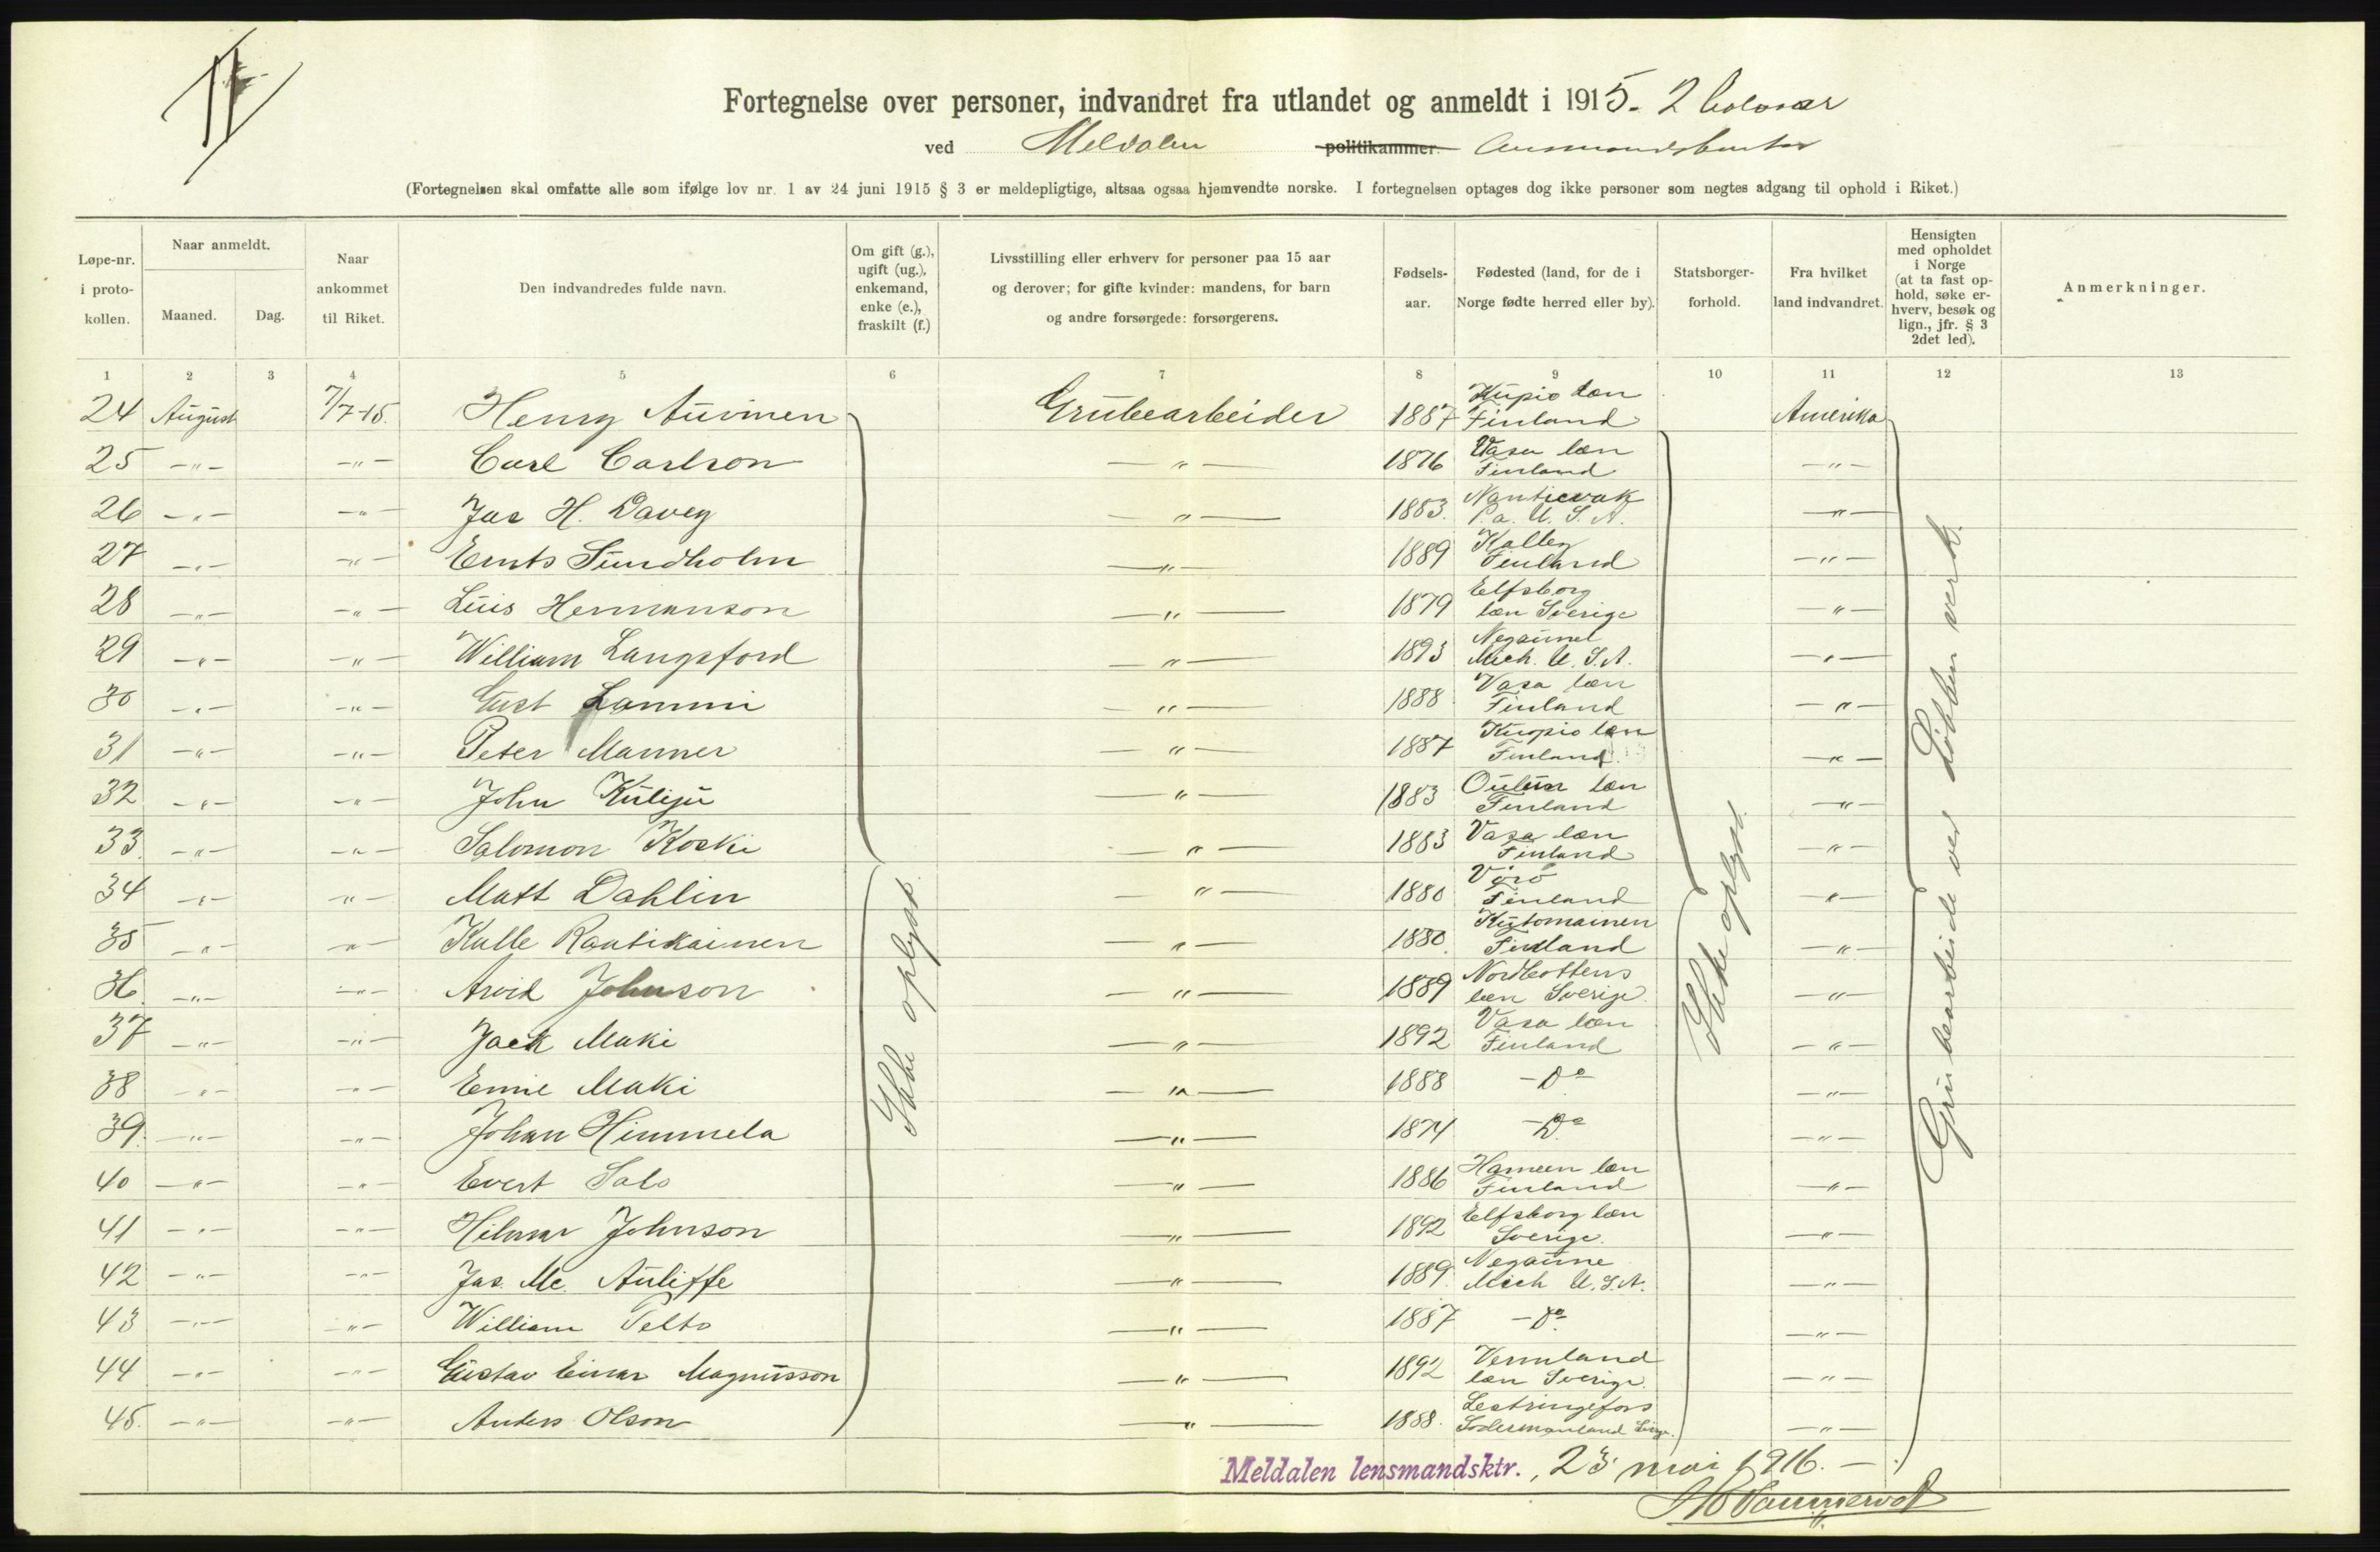 Fortegnelse over personer, indvandret fra utlandet og anmeldt i 1915. 2 halvaar
ved Meldalen politikammer lensmandskontor
(Fortegnelsen skal omfatte alle som ifølge lov nr. 1 av 24 juni 1915 § 3 er meldepligtige, altsaa ogsaa hjemvendte norske. I fortegnelsen optages dog ikke personer som negtes adgang til ophold i Riket.)
Løpe-nr. i proto-kollen. Naar anmeldt. Maaned. Dag. Naar ankommet til Riket. Den indvandredes fulde navn. Om gift (g.), ugift (ug.), enkemand, enke (e.), fraskilt (f.) Livsstilling eller erhverv for personer paa 15 aar og derover; for gifte kvinder: mandens, for barn og andre forsørgede: forsørgerens. Fødsels-aar. Fødested (land, for de i Norge fødte herred eller by). Statsborger-forhold. Fra hvilket land indvandret. Hensigten med opholdet i Norge (at ta fast op-hold, søke er-hverv, besøk og lign., jfr. § 3 2det led). Anmerkninger.
1 2 3 4 5 6 7 8 9 10 11 12 13
24 August 7/7-15. Henry Auvinen Grubearbeider 1887 Kupio læn Finland Amerika
25 -"- -"- Carl Carlson -"- 1876 Vasa læn Finland -"-
26 -"- -"- Jas H. Davey -"- 1883. P.a. U.S.A. -"-
27 -"- -"- Ernts Sundholm -"- 1889 Finland -"-
28 -"- -"- Luis Hermanson -"- 1879 Elfsborg læn Sverige -"-
29 -"- -"- William Langsford -"- 1893 Negaunel Mich. U.S.A. -"-
30 -"- -"- Gust Lammi -"- 1888 Vasa læn Finland -"-
31 -"- -"- Peter Manner -"- 1887 Kuopio læn Finland. -"-
32 -"- -"- John Kuliju -"- 1883 Oulun læn Finland -"-
33. -"- -"- Salomon Koski -"- 1883 Vasa læn Finland -"-
34 -"- -"- Matt Dahlin -"- 1880 Vörö Finland -"-
35 -"- -"- Kalle Rautikainen -"- 1880. Finland -"-
36. -"- -"- Arvid Johnson -"- 1889 Nordbottens læn Sverige. -"-
37 -"- -"- Jack Maki -"- 1892 Vasa læn Finland -"-
38 -"- -"- Emil Maki -"- 1888 -Do -"-
39. -"- -"- Johan Himmela -"- 1874 -Do -"-
40 -"- -"- Evert Salo -"- 1886 Hameen læn Finland -"-
41 -"- -"- Hilmar Johnson -"- 1892 Elfsborg læn Sverige. -"-
42 -"- -"- Jas. Mc. Auliffe -"- 1889. Negaune Mich U.S.A. -"-
43 -"- -"- William Pelto -"- 1887 -Do -"-
44 -"- -"- Gustav Einar Magnusson -"- 1892 Vermland læn Sverige. -"-
45. -"- -"- Anders Olson -"- 1888. Södermanland -"-
Ikke oplyst.
Ikke oplyst.
Grubearbeide ved Løkken verk.
Meldalen lensmandsktr., 23 mai 1916. -